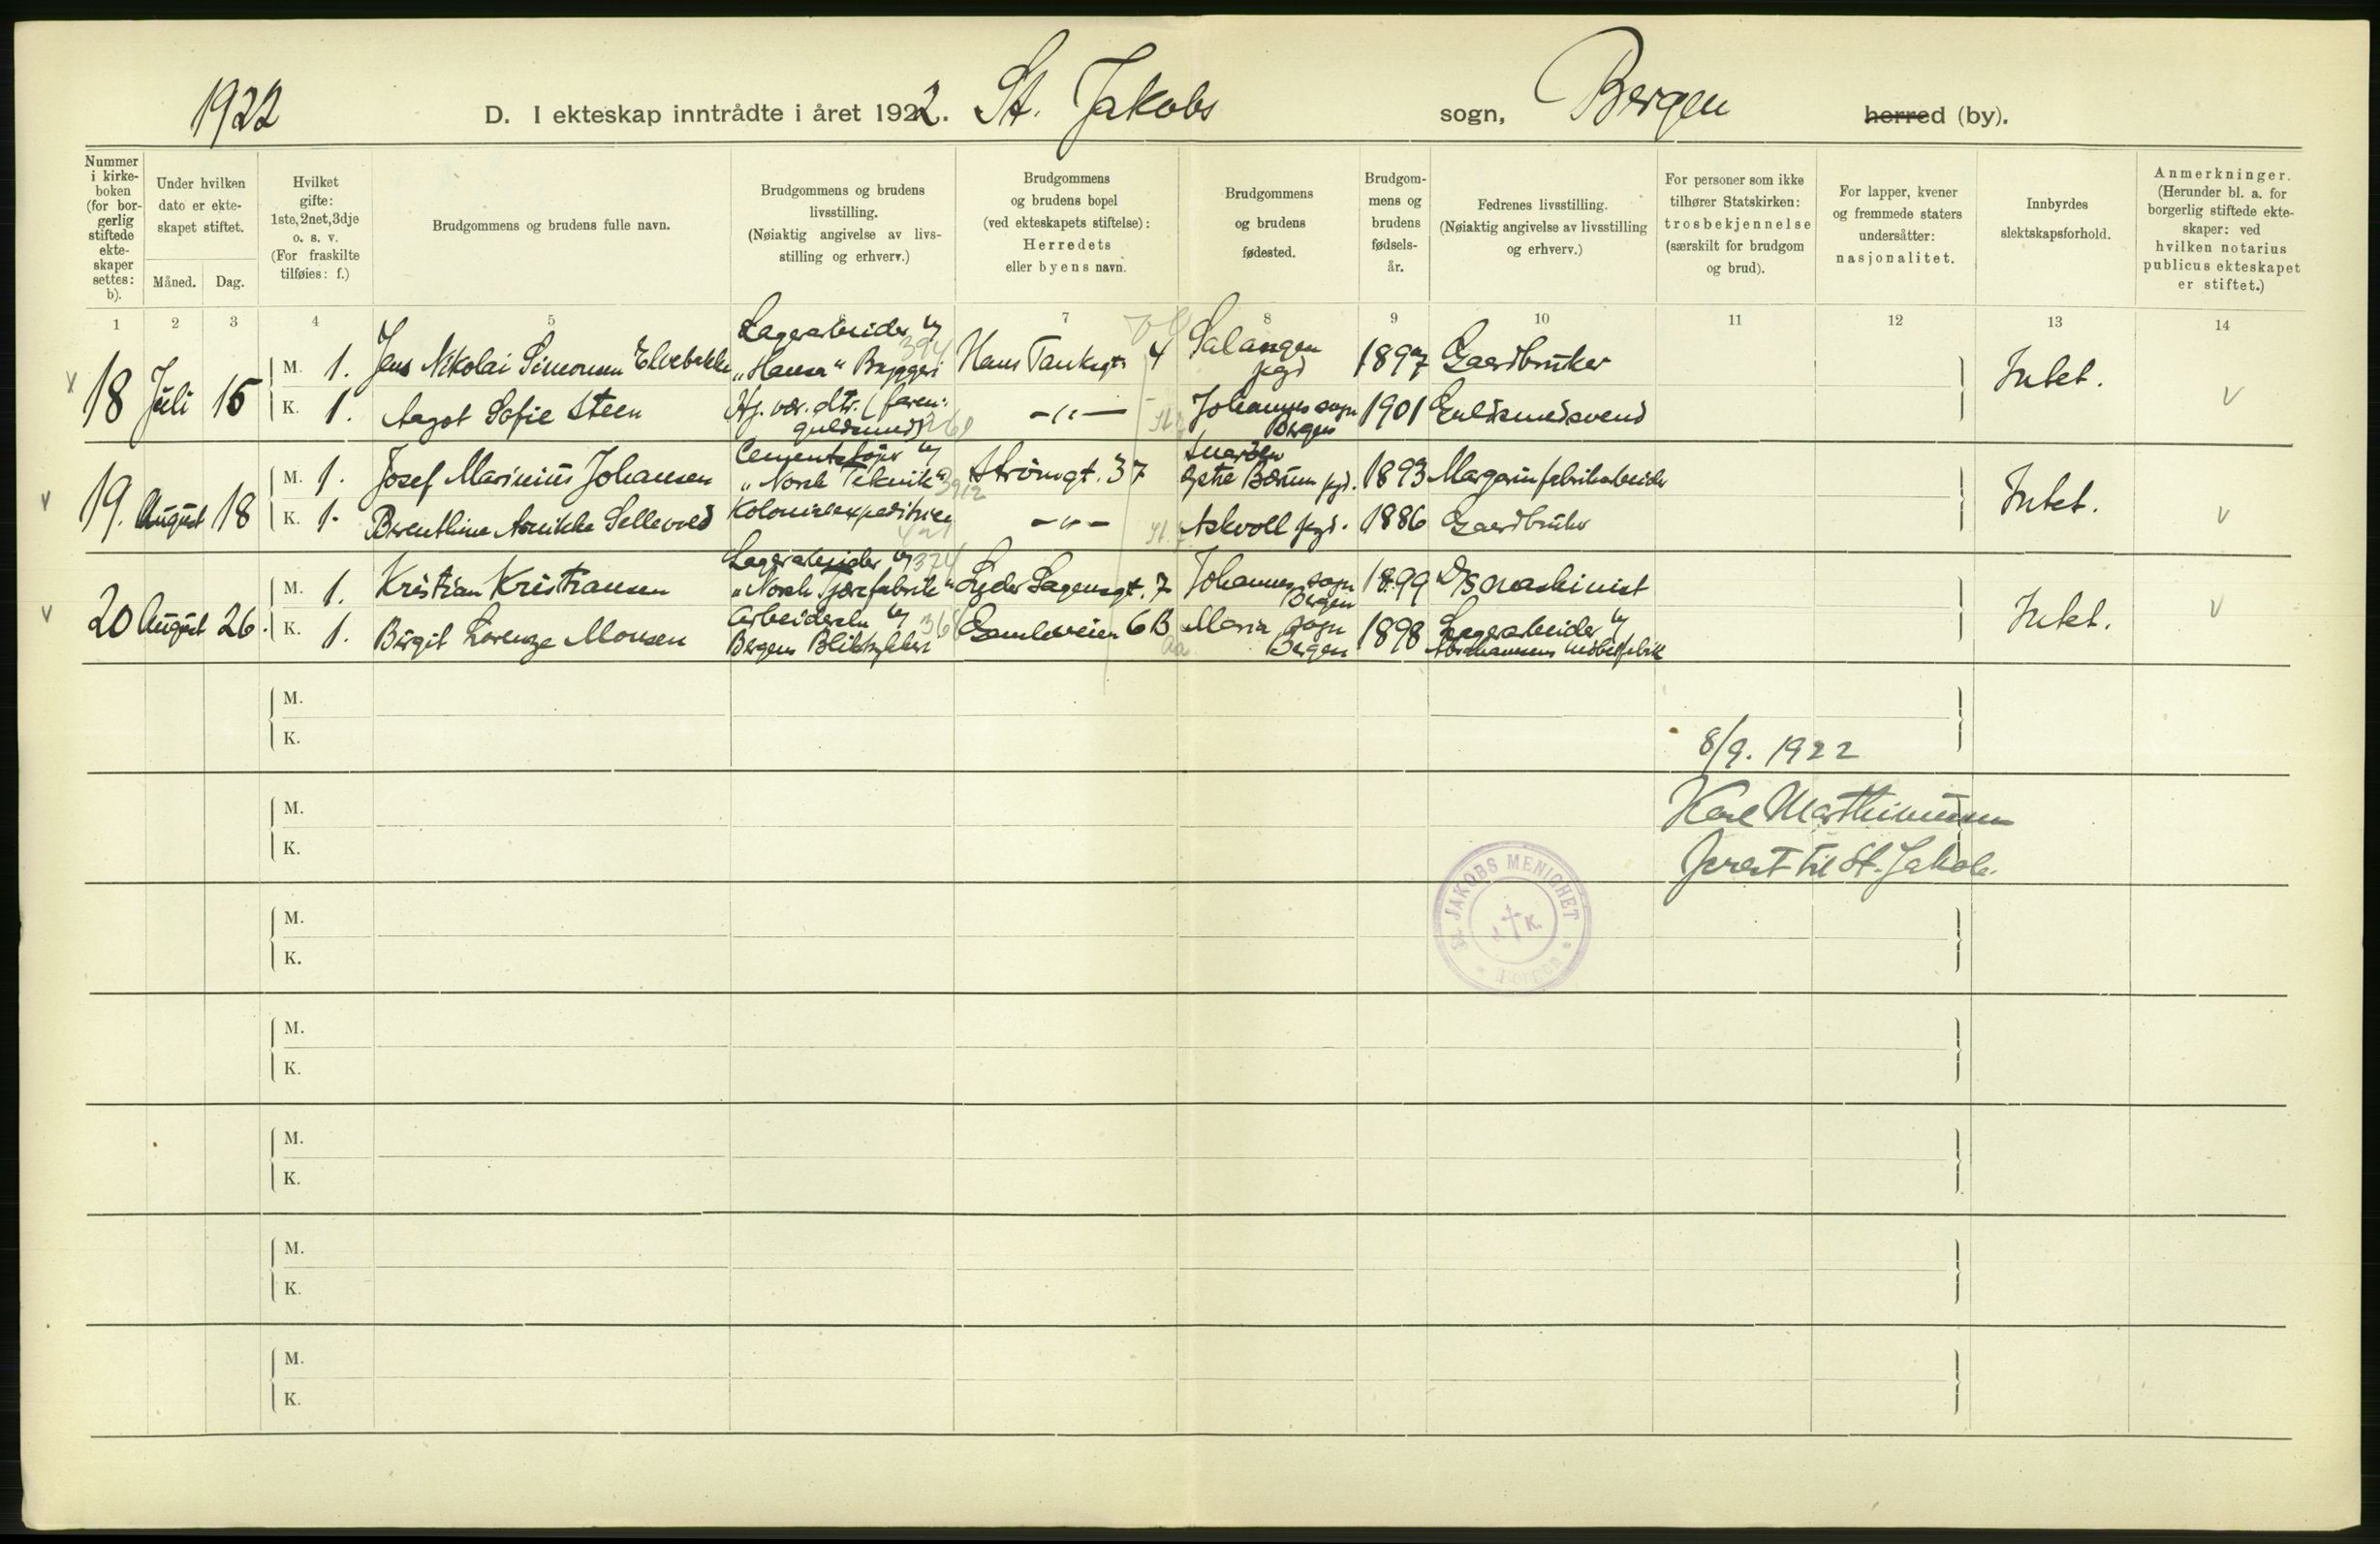 1922 D. I ekteskap inntrådte i året 1922. St. Jakobs sogn, Bergen herred (by).
Nummer i kirkeboken (for borgerlig stiftede ekteskaper settes: b).
Under hvilken dato er ekteskapet stiftet.
Måned. Dag.
Hvilket gifte: 1ste, 2net, 3dje o. s. v. (For fraskilte tilføies: f.)
Brudgommens og brudens fulle navn.
Brudgommens og brudens livsstilling. (Nøiaktig angivelse av livsstilling og erhverv.)
Brudgommens og brudens bopel (ved ekteskapets stiftelse): Herredets eller byens navn.
Brudgommens og brudens fødested.
Brudgommens og brudens fødselsår.
Fedrenes livsstilling. (Nøiaktig angivelse av livsstilling og erhverv.)
For personer som ikke tilhører Statskirken: trosbekjennelse (særskilt for brudgom og brud).
For lapper, kvener og fremmede staters undersåtter: nasjonalitet.
Innbyrdes slektskapsforhold.
Anmerkninger. (Herunder bl. a. for borgerlig stiftede ekteskaper: ved hvilken notarius publicus ekteskapet er stiftet.)
1 2 3 4 5 7 8 9 10 11 12 13 14
18 Juli 15 M. 1. Jens Nikolai Simonsen Elvebakke Lagerarbeider v/ "Hansa" Bryggeri 394 Hans Tanksgt 4 Salangen pgd 1897 Gaardbruker Intet. v
K. 1. Aagot Sofie Steen Hj. vær. dtr. (faren: guldsmed) -"- Johannes sogn Bergen 1901 Guldsmedsvend
19. August 18 M. 1. Josef Marinius Johansen Cementstøper v/ "Norsk Teknik" Strømgt. 37 Østre Bærum pgd. 1893 Margarinfabrikarbeider Intet. v
K. 1. Berentline Annikke Sellevold Kolonialexpeditrice -"- Askvoll pgd. 1886 Gaardbruker
20 August 26. M. 1. Kristian Kristiansen Lagerarbeider v/ 374 "Norsk Tjærefabrik" Lyder Sagensgt. 7 Johannes sogn Bergen 1899 D/S maskinist Intet. v
K. 1. Birgit Lorenze Monsen Arbeiderske v/ Bergens Bliktrykkeri Gamleveien 6B Maria sogn Bergen 1898 Lagerarbeider v/ Abrahamsens møbelfabrik
M.
K.
8/9. 1922
M.
K.
Karl Marthinussen
Prest til St. Jakob.
M.
K.
ST. JAKOBS MENIGHET
K.
BERGEN
M.
K.
M.
K.
M.
K.
M.
K.